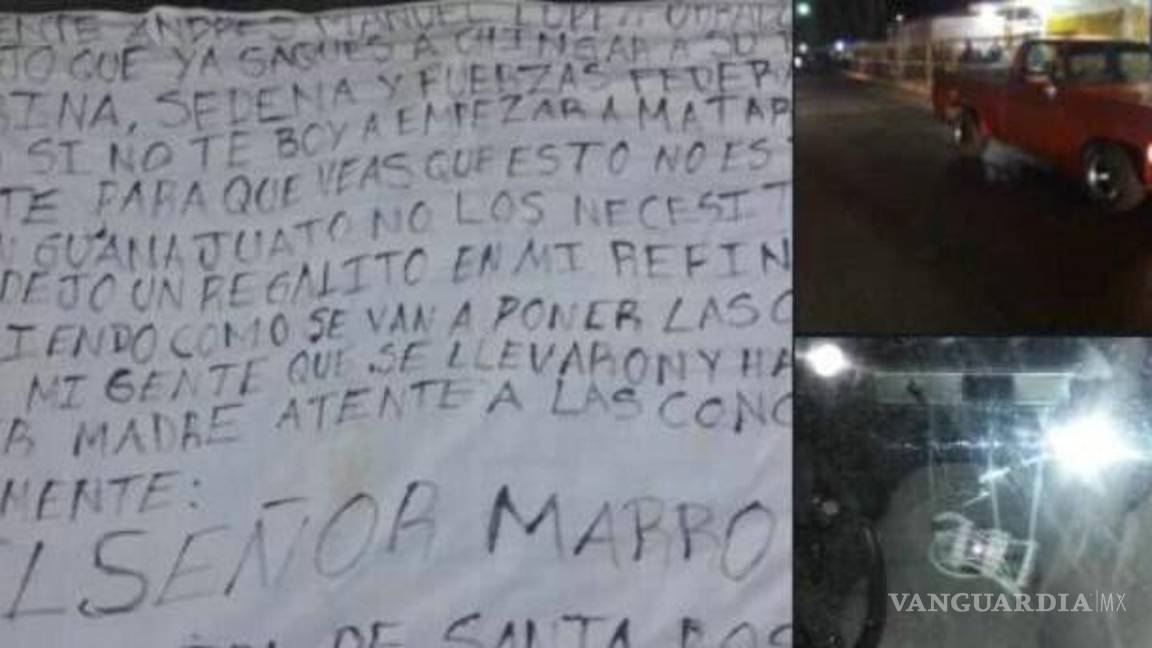 ENTE ANDRES MANUEL LOPEZ OBRADO
JO QUE YA SAQUES A CHINGAR A SU
RINA, SEDENA Y FUERZAS FEDERA
SI NO TE BOY A EMPEZAR A MATAR
TE PARA QUE VEAS QUE ESTO NO ES
GUANAJUATO NO LOS NECESIT
DEJO UN REGALITO EN MI REFIN
IENDO COMO SE VAN A PONER LAS C
MI GENTE QUE SE LLEVARON Y HA
MADRE ATENTE A LAS CONC
MENTE:
EL SEÑOR MARRO
DE SANTA ROS
VANGUARDIA|MX